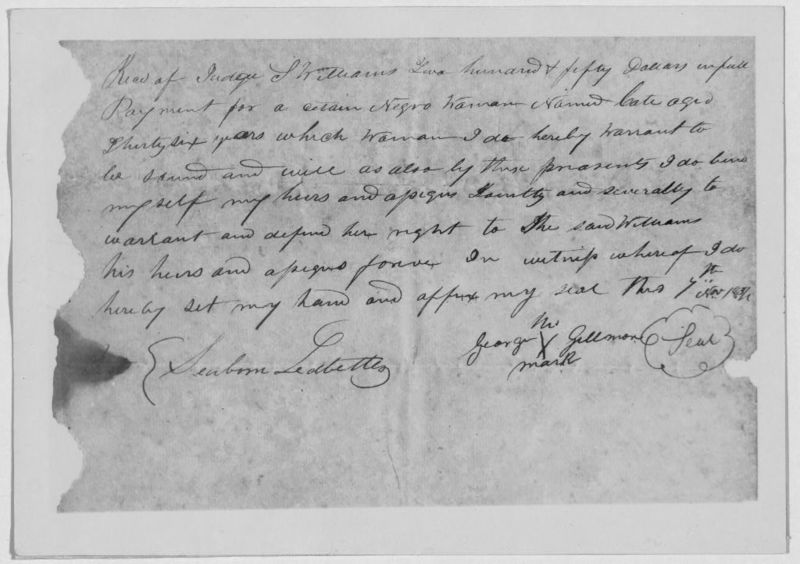 Recd of Judge S Williams Two hundred & fifty Dollars in full
Payment for a certain Negro Woman Named Cate aged
Thirtysix years which Woman I do hereby Warrant to
be sound and well as also by these presents I do bind
myself my heirs and assigns Jointly and severally to
warrant and defend her right to the said Williams
his heirs and assigns forever In witness whereof I do
hereby set my hand and affix my seal this 7th Nov
Seaborn Ledbetter
his
George X Gillmore Seal
mark